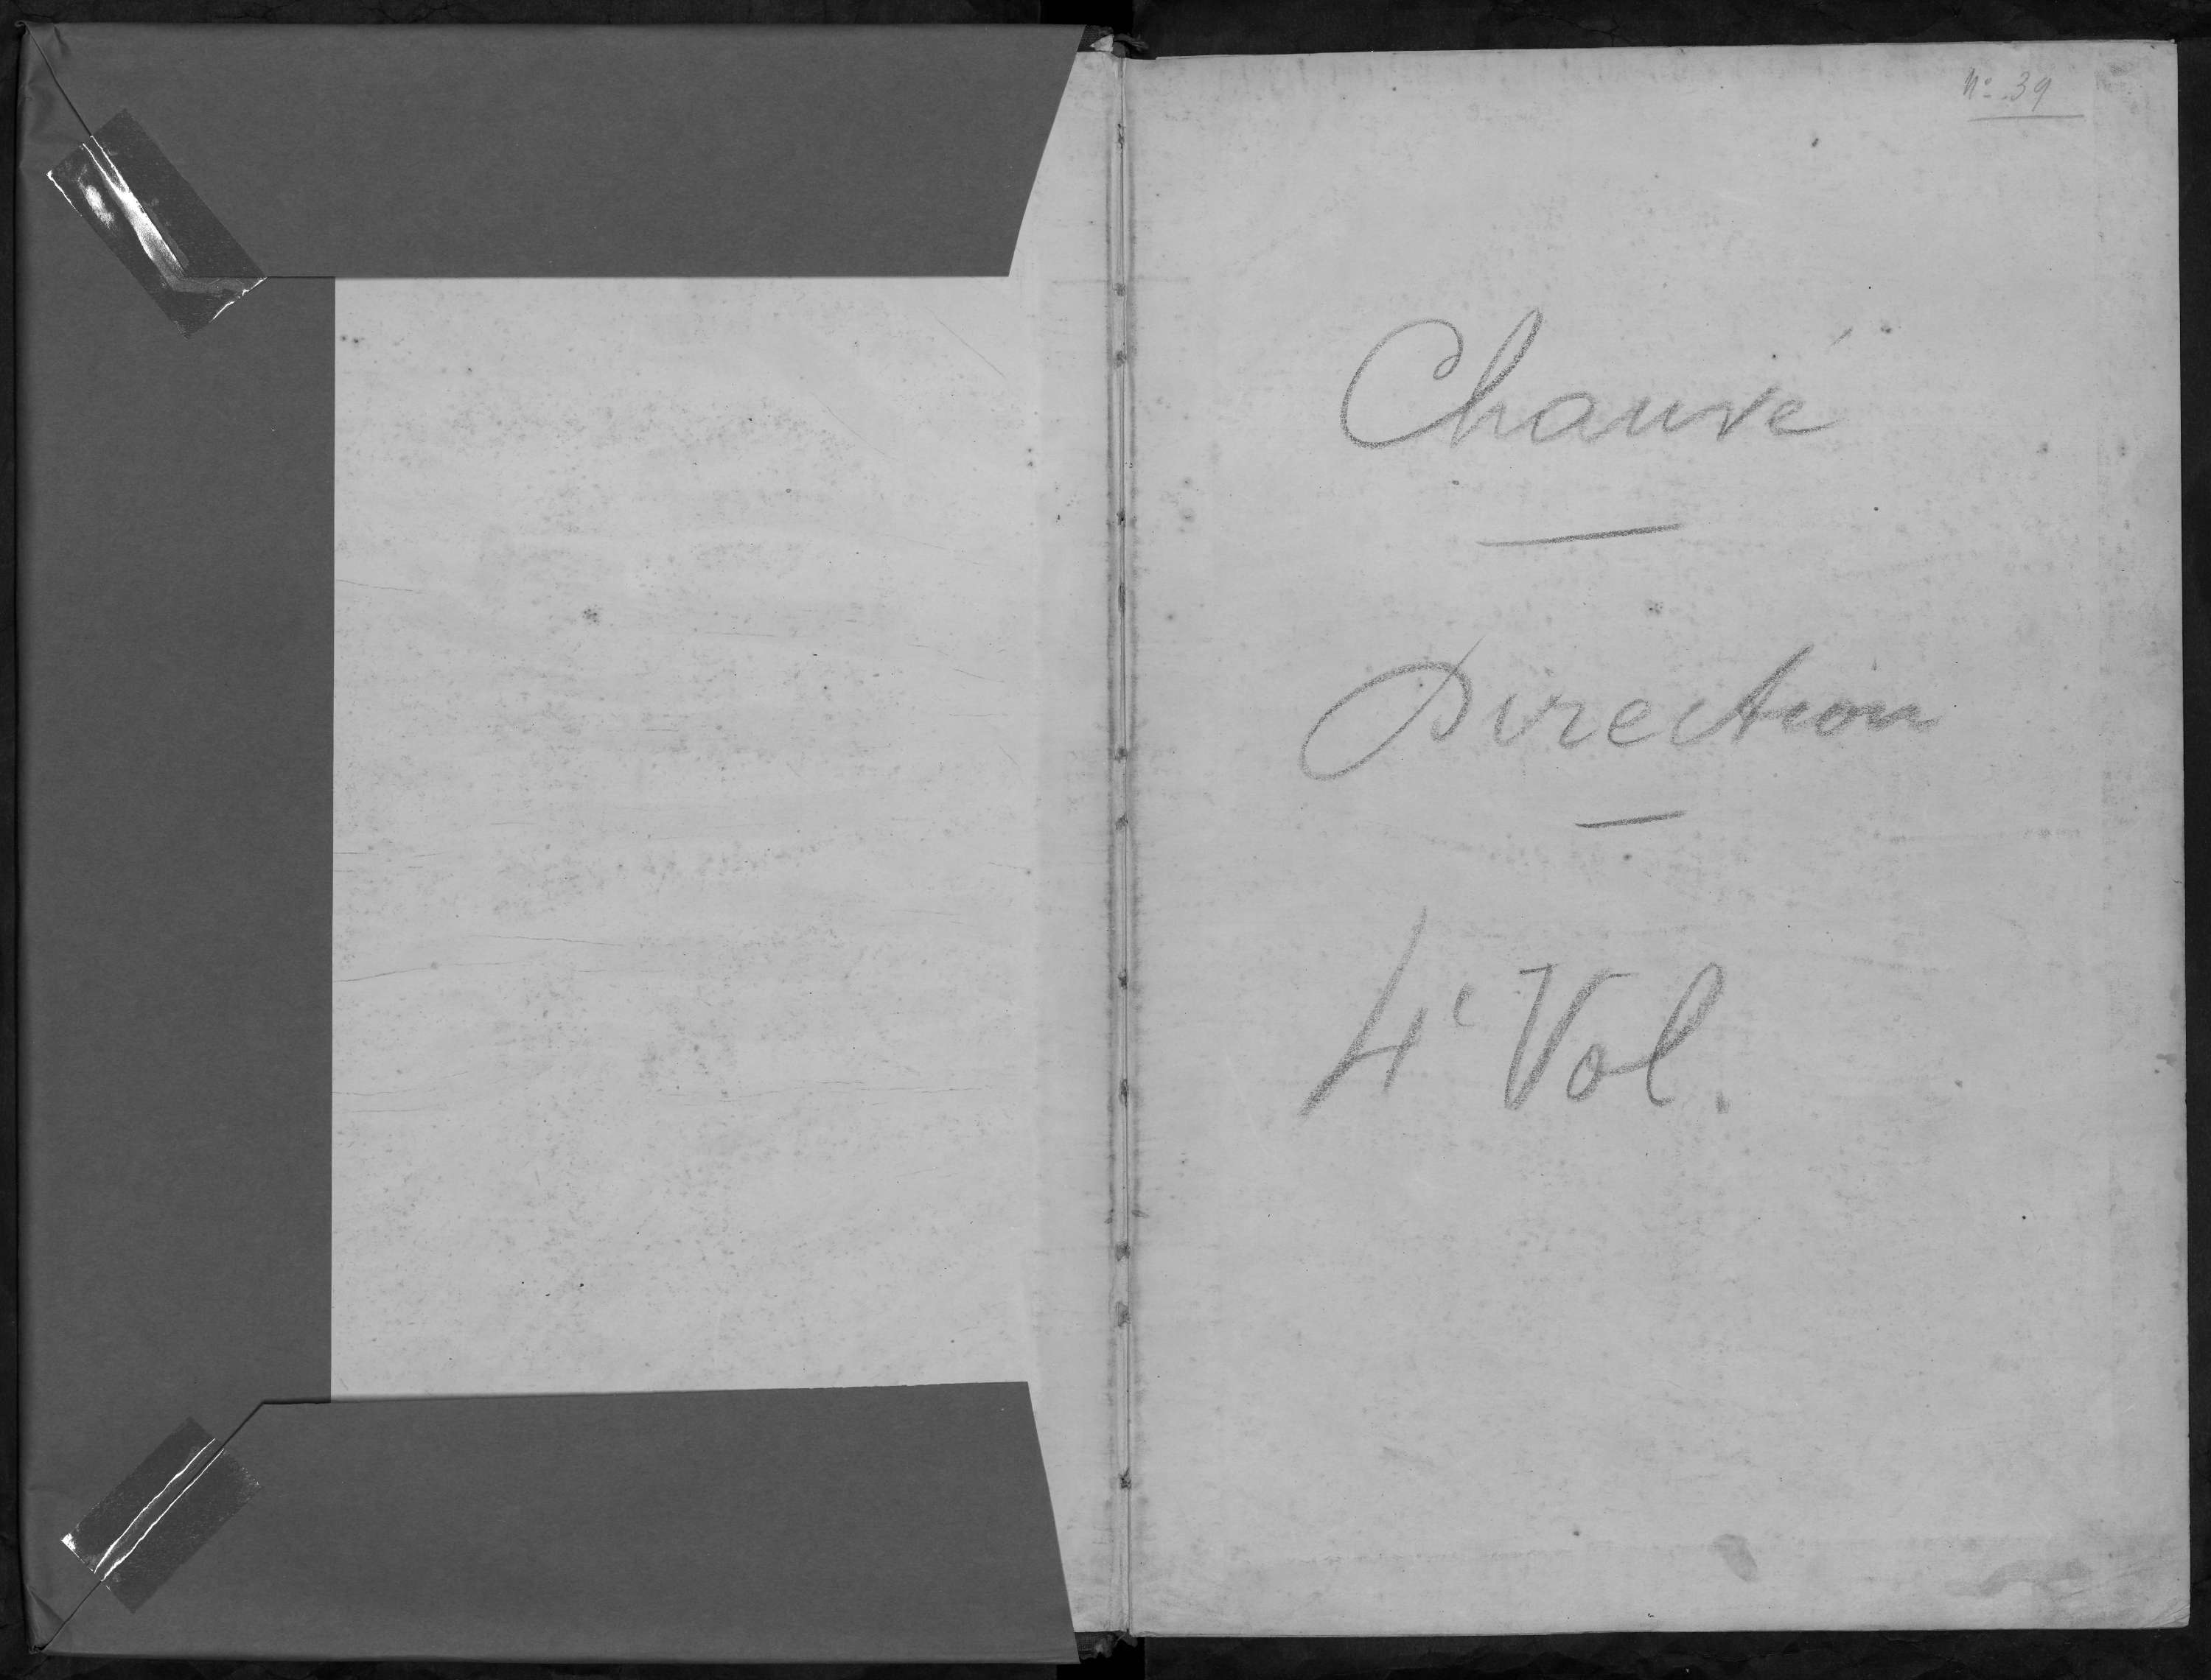 N° 39
Chauvé
Direction
4e Vol.